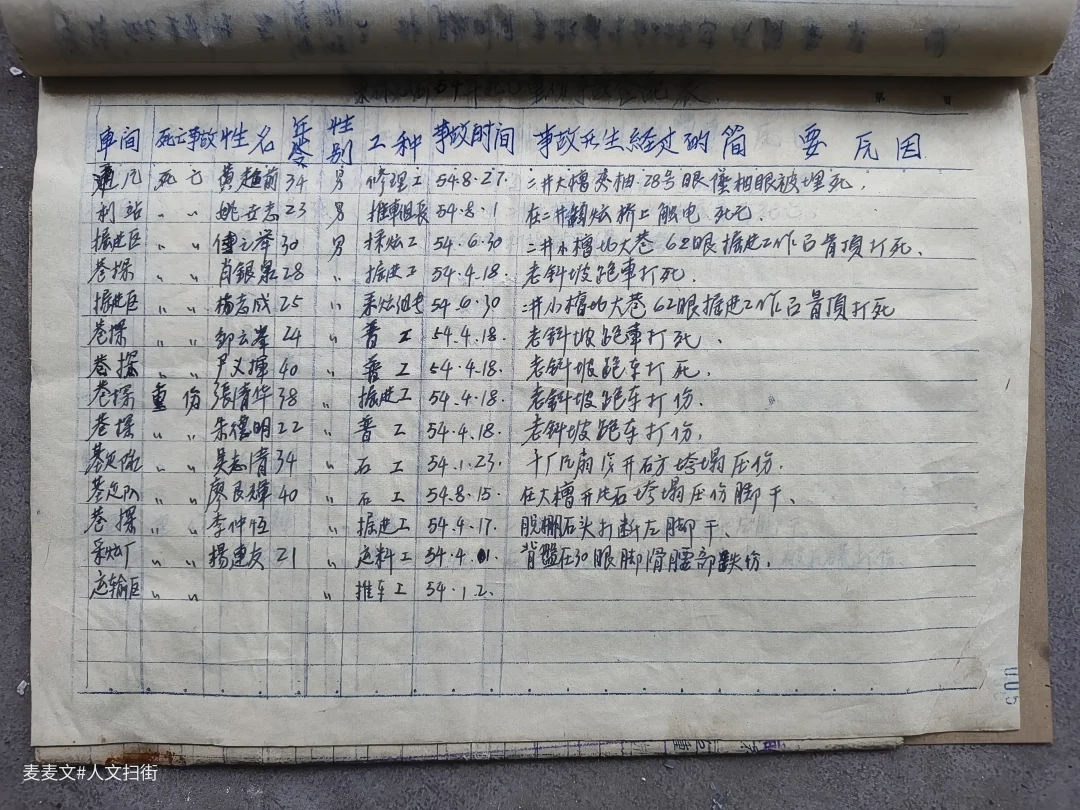 54年
車间 死亡事故 性名 年令 性别 工种 事故时间 事故发生经过的简要原因
通风 死亡 黄超前 34 男 修理工 54.8.27. 二井大槽 28号眼 眼被埋死.
〃 〃 姚 志 23 男 推車组長 54.8.1 在二井 桥上触电死亡.
掘进区 〃 〃 傅 举 30 男 采炭工 54.6.30 二井小槽北大巷62眼掘进工作 冒頂打死、
巷探 〃 〃 肖銀泉 28 〃 掘进工 54.4.18. 老斜坡跑車打死.
掘进区 〃 〃 楊志成 25 〃 采炭组长 54.6.30 二井小槽北大巷62眼掘进工作 冒頂打死
巷探 〃 〃 邹云 24 〃 普工 54.4.18. 老斜坡跑車打死、
巷探 〃 〃 尹义揮 40 〃 普工 54.4.18. 老斜坡跑车打死.
巷探 重伤 張清华 38 〃 掘进工 54.4.18. 老斜坡跑车打伤.
巷探 〃 〃 朱德明 22 〃 普工 54.4.18. 老斜坡跑车打伤.
基建队 〃 〃 吴志清 34 〃 石工 54.1.23. 开石方垮塌压伤.
基建队 〃 〃 廖良輝 40 〃 石工 54.8.15. 在大槽开片石垮塌压伤脚干、
巷探 〃 〃 李仲恒 〃 掘进工 54.4.17. 石头打断左脚干、
采炭厂 〃 〃 楊連友 21 〃 运料工 54.4.01. 在30眼脚滑腰部跌伤.
运输区 〃 〃 〃 推车工 54.1.2.
麦麦文#人文扫街